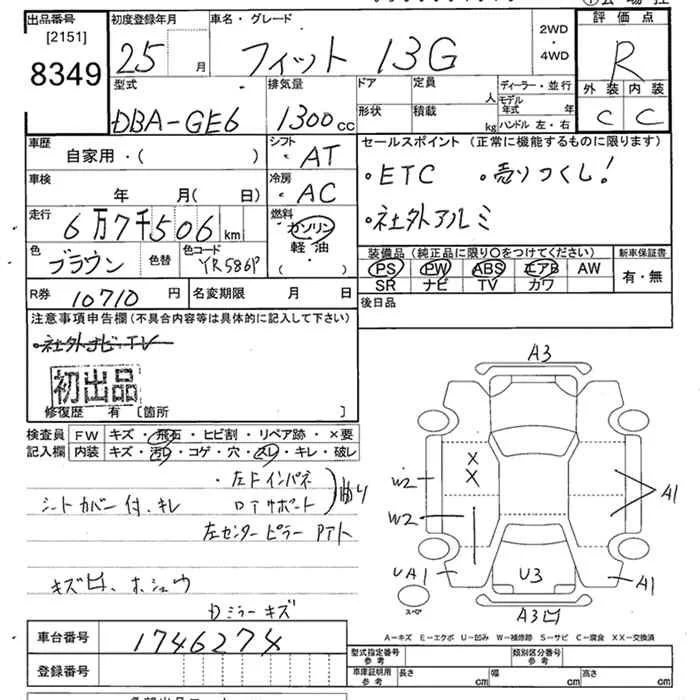 出品番号 初度登録年月 車名・グレード 2WD・4WD 評価点
[2151] 8349 25 月 フィット 13G R
型式 排気量 ドア 定員 人 ディーラー・並行 外装 内装
DBA-GE6 1300cc 形状 積載 kg モデル年式 年 ハンドル 左・右 C C
車歴 自家用・( ) シフト ・AT セールスポイント (正常に機能するものに限ります)
車検 年 月( 日) 冷房 ・AC ・ETC ・売りつくし!
走行 6万7千506km 燃料 ガソリン 軽・油 ・( ) ・社外アルミ
色 ブラウン 色替 色コード YR586P 装備品 (純正品に限り○をつけてください) 新車保証書
PS PW ABS エアB AW 有・無
R券 10710円 名変期限 月 日 SR ナビ TV カワ
注意事項申告欄(不具合内容等は具体的に記入して下さい) 後日品
・社外ナビ・TV
初出品
修復歴 有 [箇所 ]
検査員 FW キズ・飛石・ヒビ割・リペア跡・×要
記入欄 内装 キズ・汚レ・コゲ・穴・スレ・キレ・破レ
・左Fインパネ
シートカバー付、キレ ロアサポート
左センターピラー
キズ凹、ホシュウ
Dミラーキズ
車台番号 1746274
登録番号
A3
X
X
W2
W2
A1
UA1
U3
A1
スペア
A3凹
A-キズ E-エクボ U-凹み W-補修跡 S-サビ C-腐食 XX-交換済
型式指定番号 参考 類別区分番号 参考
車庫証明用 参考 長さ cm 幅 cm 高さ cm